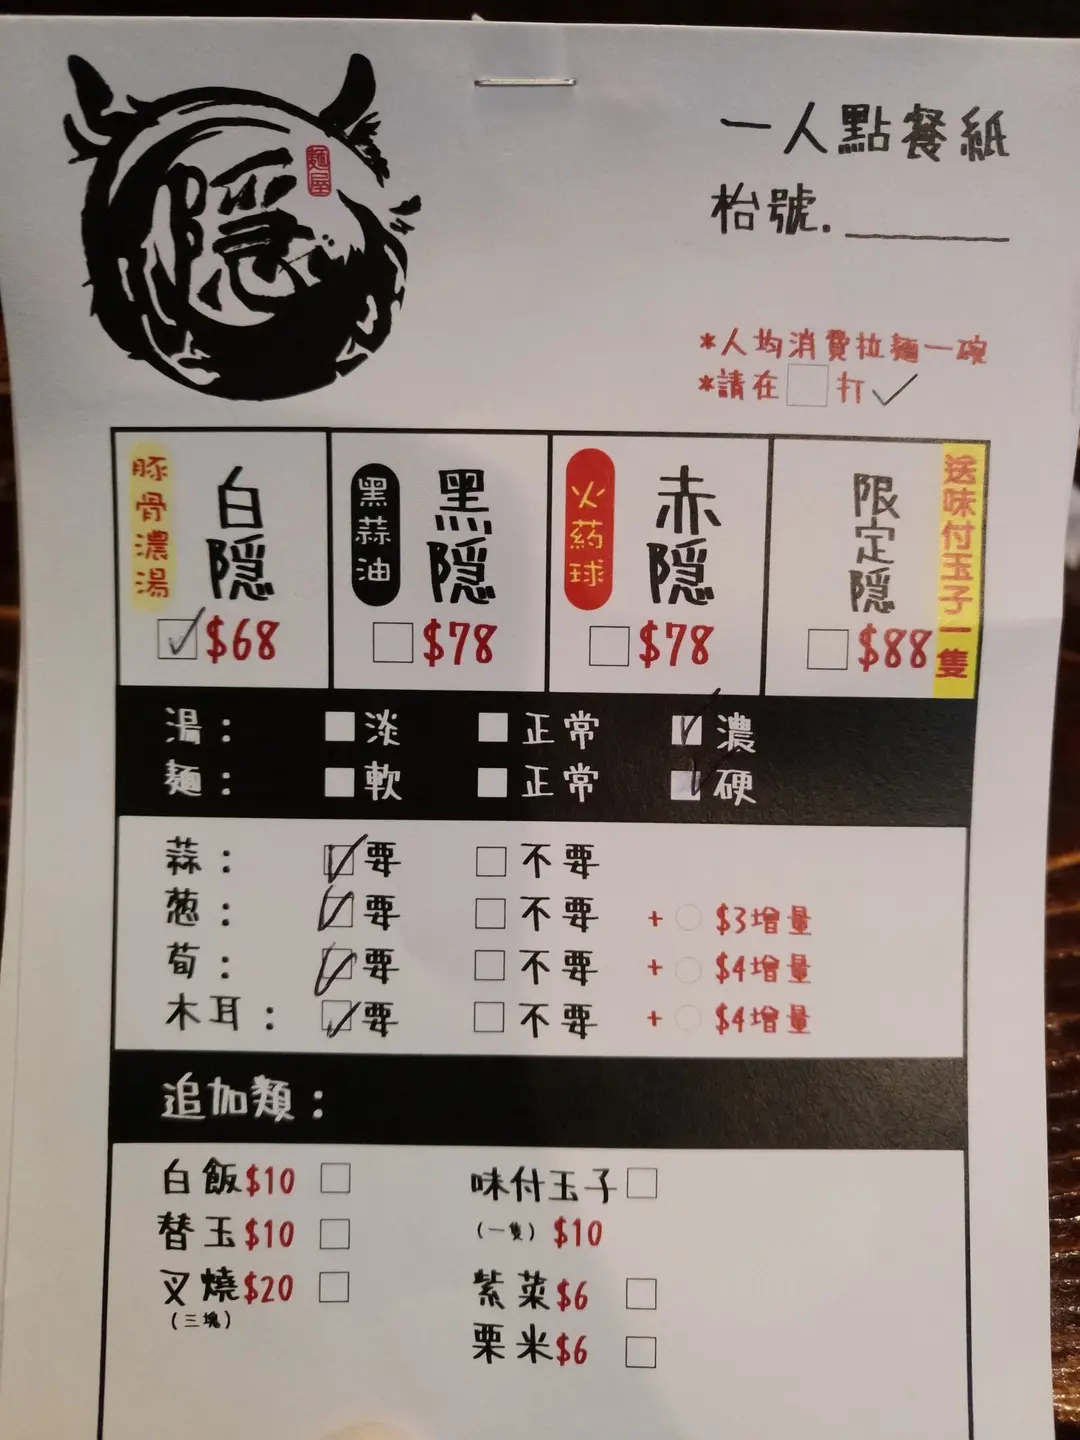 隱
麵屋
一人點餐紙
枱號.
*人均消費拉麵一碗
*請在 打✓
豚骨濃湯
白隱
$68
黑蒜油
黑隱
$78
火葯球
赤隱
$78
限定隱
$88
送味付玉子一隻
湯： 淡 正常 濃
麵： 軟 正常 硬
蒜： 要 不要
葱： 要 不要 + $3增量
荀： 要 不要 + $4增量
木耳： 要 不要 + $4增量
追加類：
白飯$10
替玉$10
叉燒$20
(三塊)
味付玉子
(一隻) $10
紫菜$6
粟米$6